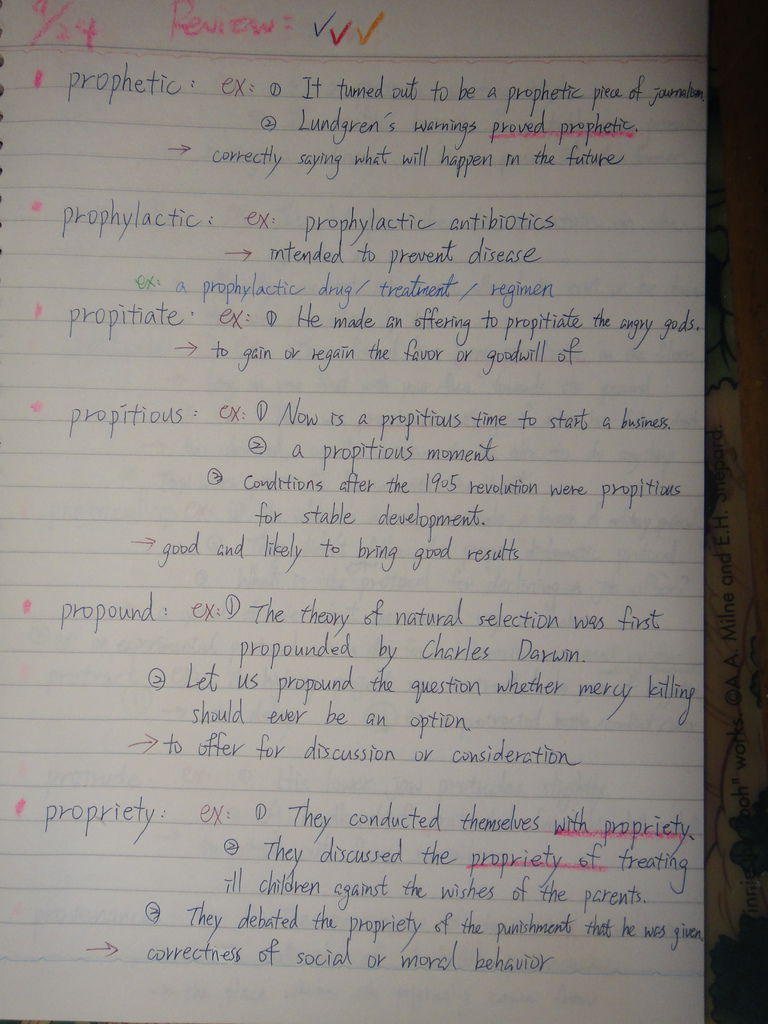 9/24 Review: ✓✓✓
prophetic: ex: ① It turned out to be a prophetic piece of journalism.
② Lundgren's warnings proved prophetic.
→ correctly saying what will happen in the future
prophylactic: ex: prophylactic antibiotics
→ intended to prevent disease
ex: a prophylactic drug/ treatment / regimen
propitiate: ex: ① He made an offering to propitiate the angry gods.
→ to gain or regain the favor or goodwill of
propitious: ex: ① Now is a propitious time to start a business.
② a propitious moment
③ Conditions after the 1905 revolution were propitious
for stable development.
→ good and likely to bring good results
propound: ex: ① The theory of natural selection was first
propounded by Charles Darwin.
② Let us propound the question whether mercy killing
should ever be an option.
→ to offer for discussion or consideration
propriety: ex: ① They conducted themselves with propriety.
② They discussed the propriety of treating
ill children against the wishes of the parents.
③ They debated the propriety of the punishment that he was given.
→ correctness of social or moral behavior
works. ©A.A. Milne and E.H. Shepard.